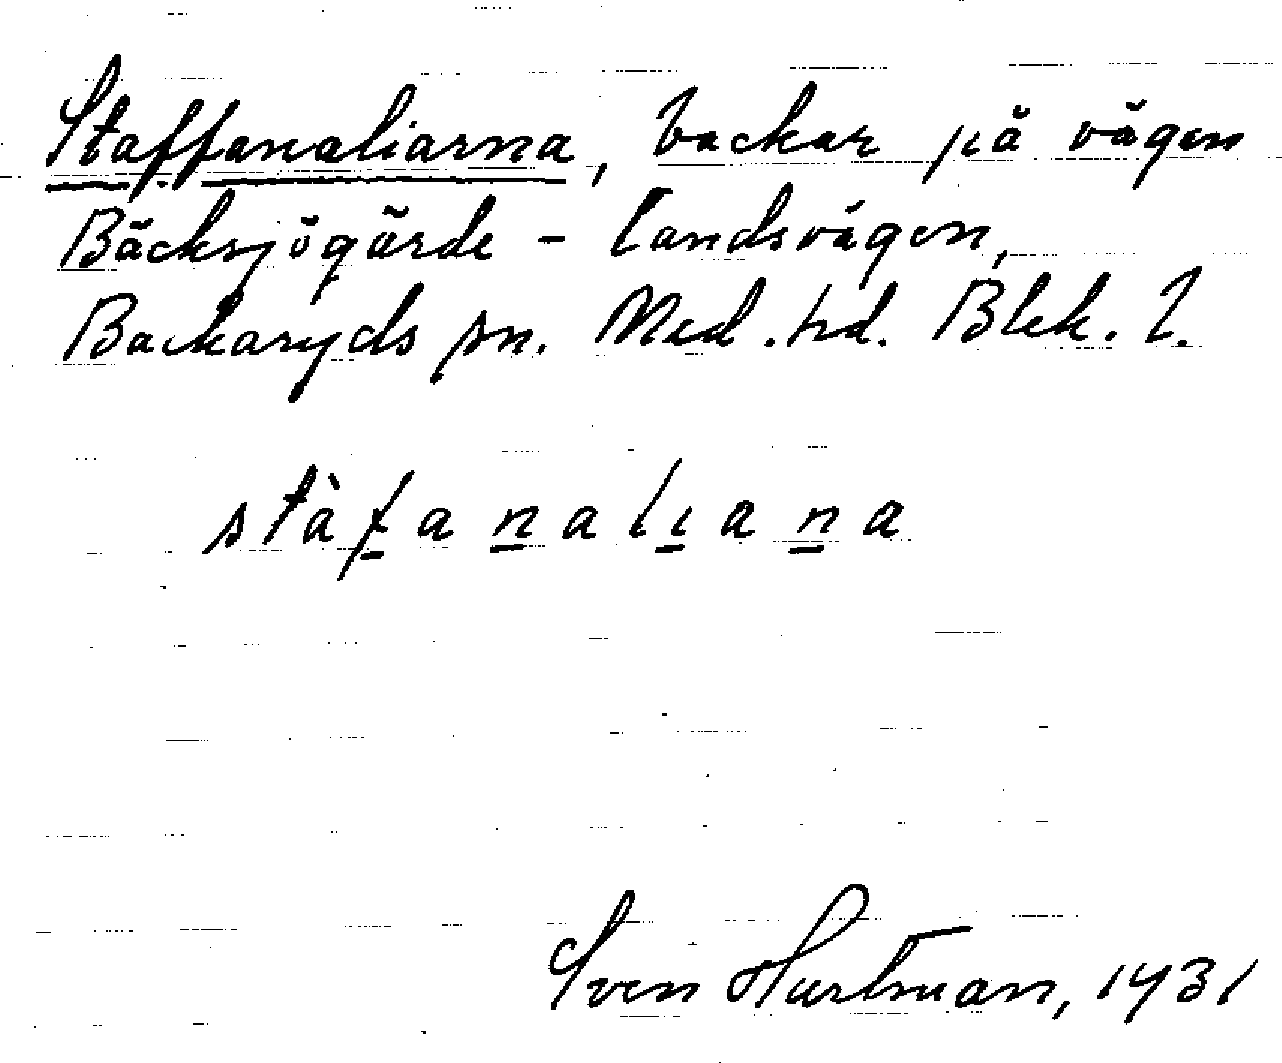 Staffanaliarna, backar på vägen
Bäcksjögärde - landsvägen,
Backaryds sn. Med. hd. Blek. l.
stàfanalıana
Sven Hartman, 1931